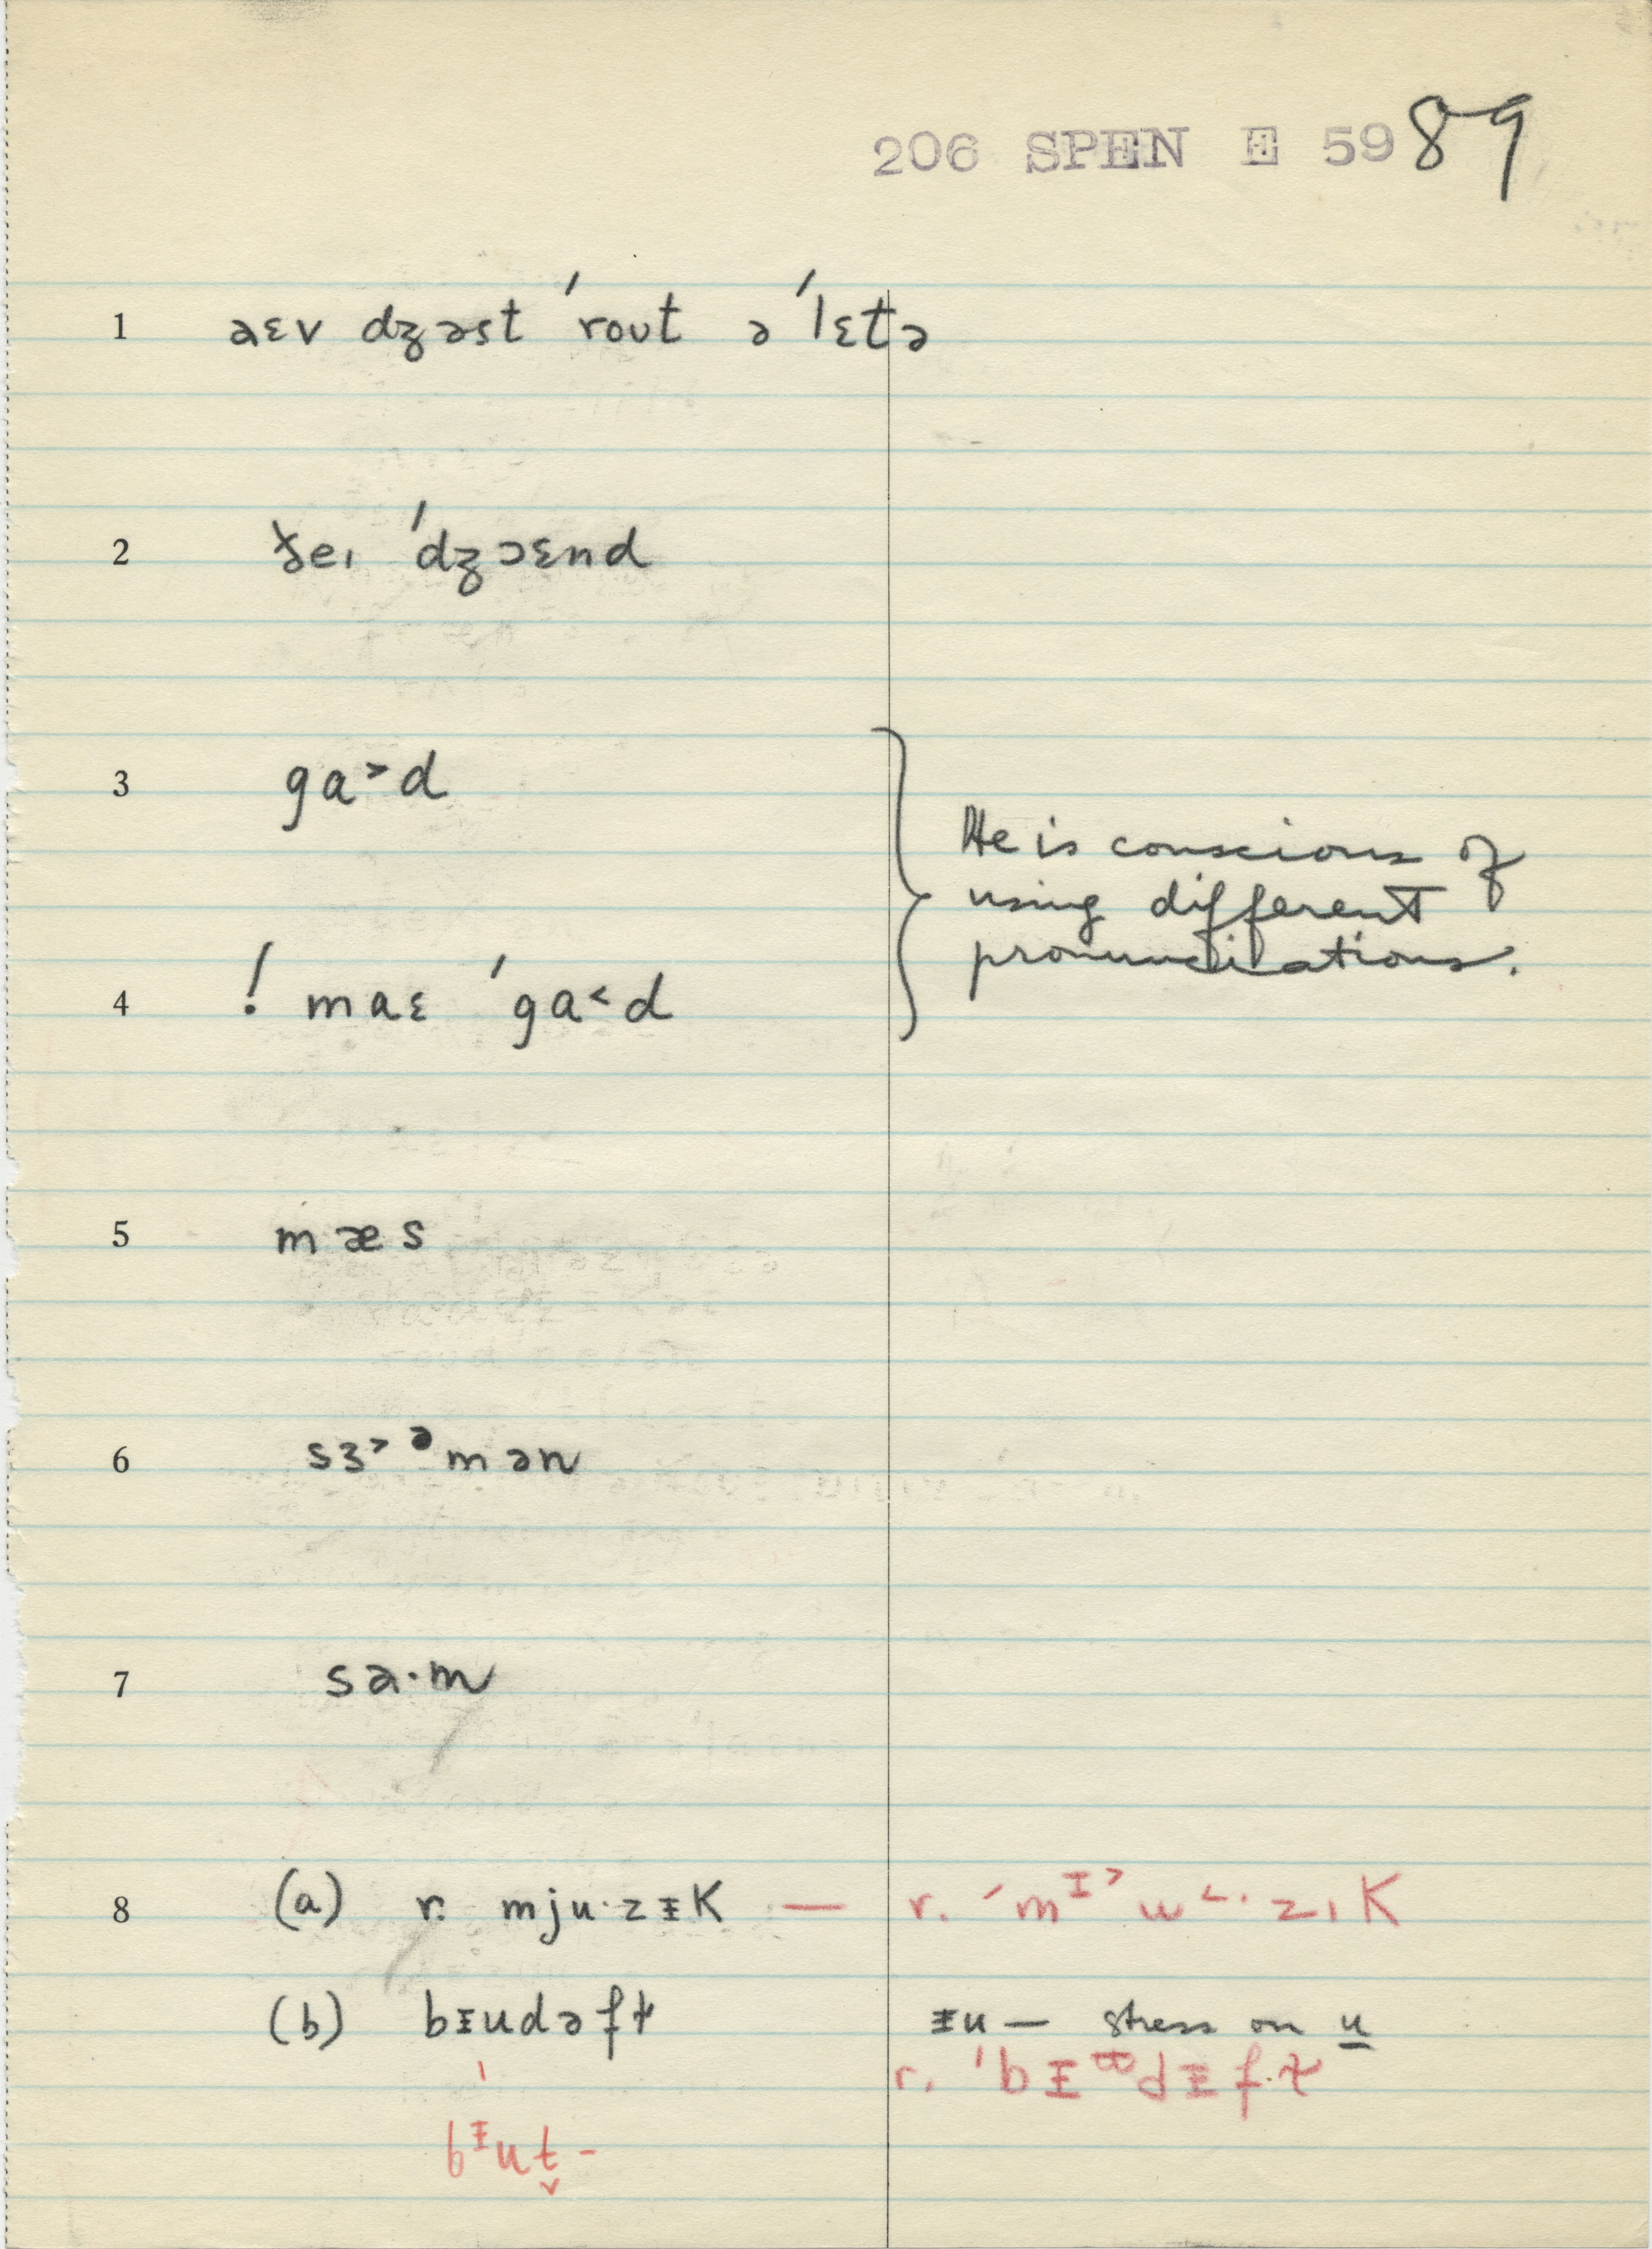 206 SPEN E 59 89
1 aɛv dʒəst ˈrout ə ˈlɛtə
2 ɟeı ˈdʒɔɛnd
3 ga˃d
He is conscious of
using different
pronunciations.
4 ! maɛ ˈga˂d
5 mæs
6 sɜ˃ᵊmən
7 sa·m
8 (a) r. mju·zᵻK — r. ˊmᶦ˃u˂·zıK
(b) bɪudəft ᵻu — stress on u
r. ˈbᵻ d ᵻft
bᵻut̬ -